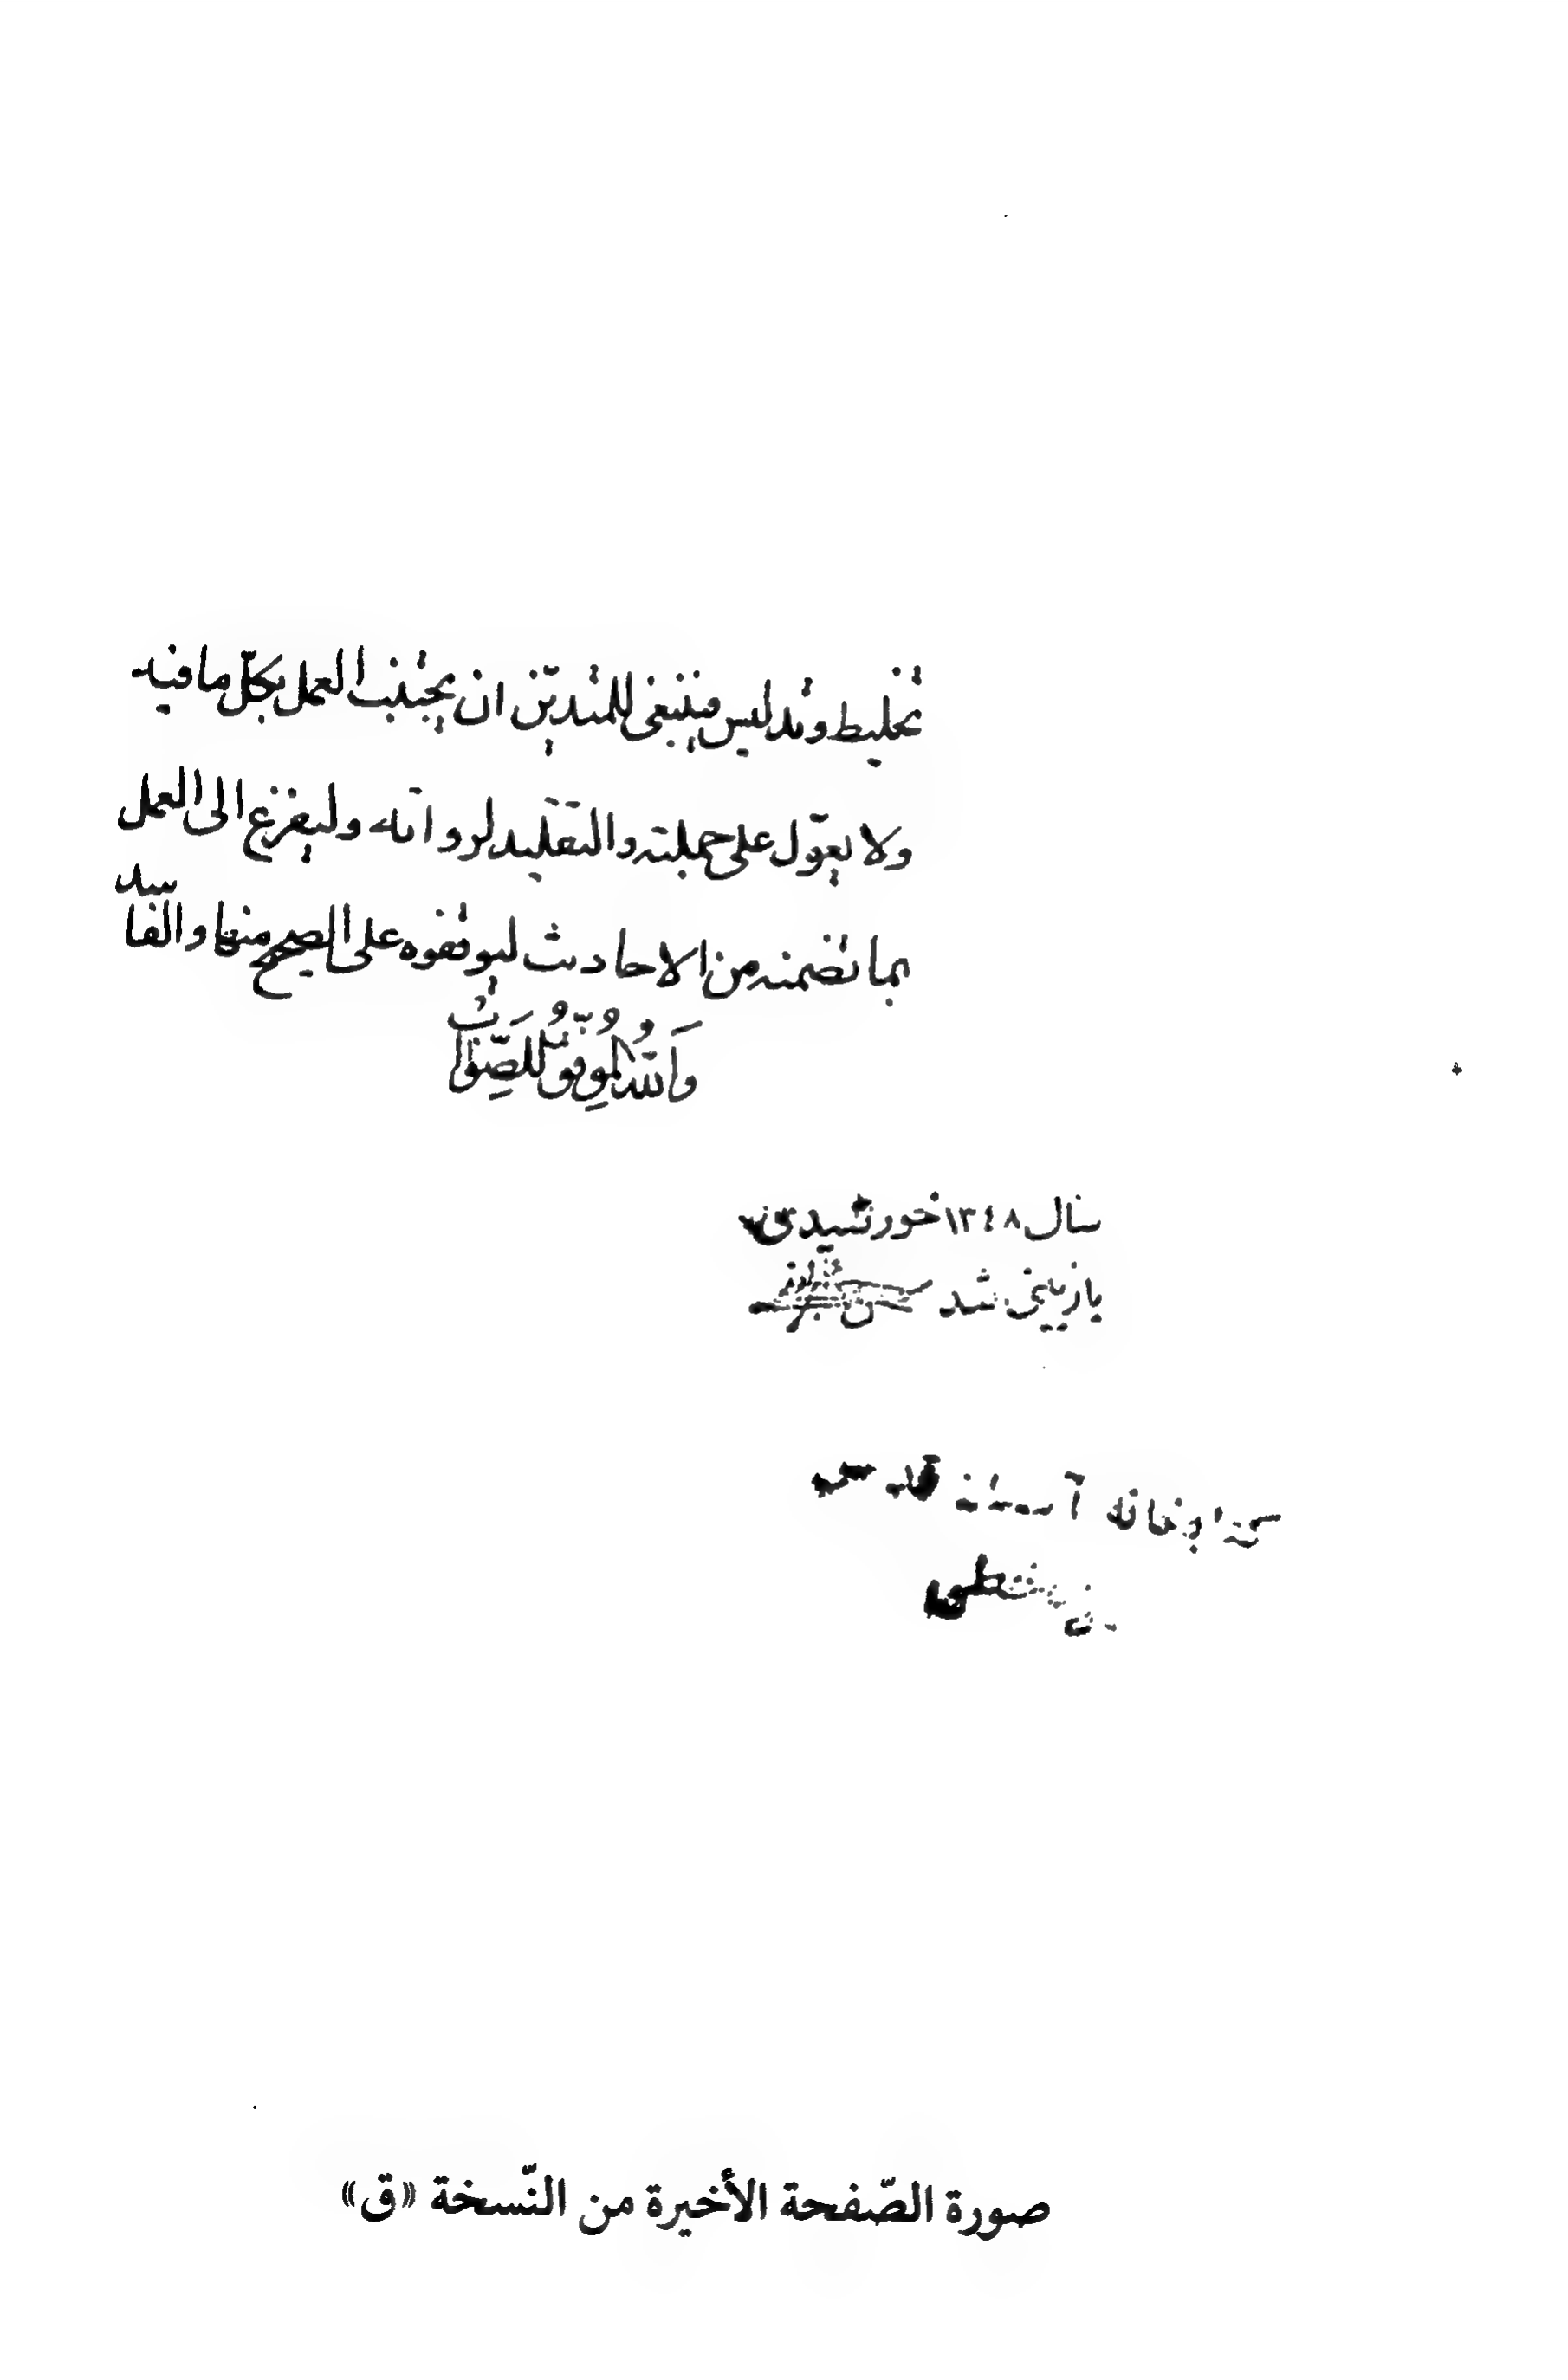 تخليط وتدليس فينبغى للمتديّن ان يجتنب العمل بكلّ ما فيه
ولا يعوّل على جملته والتقليد لرواته وليفزغ الى العمل
بما تضمنه من الاحاديث ليوقفوه على الصحيح منها والفاسد
وَاللّهُ المُوفِّقُ للصِّوَابُ
سال ١٣٤٨ خورشيدى
بازبينى شد
كتابخانه آستانه قدس
صورة الصّفحة الأخيرة من النّسخة «ق»